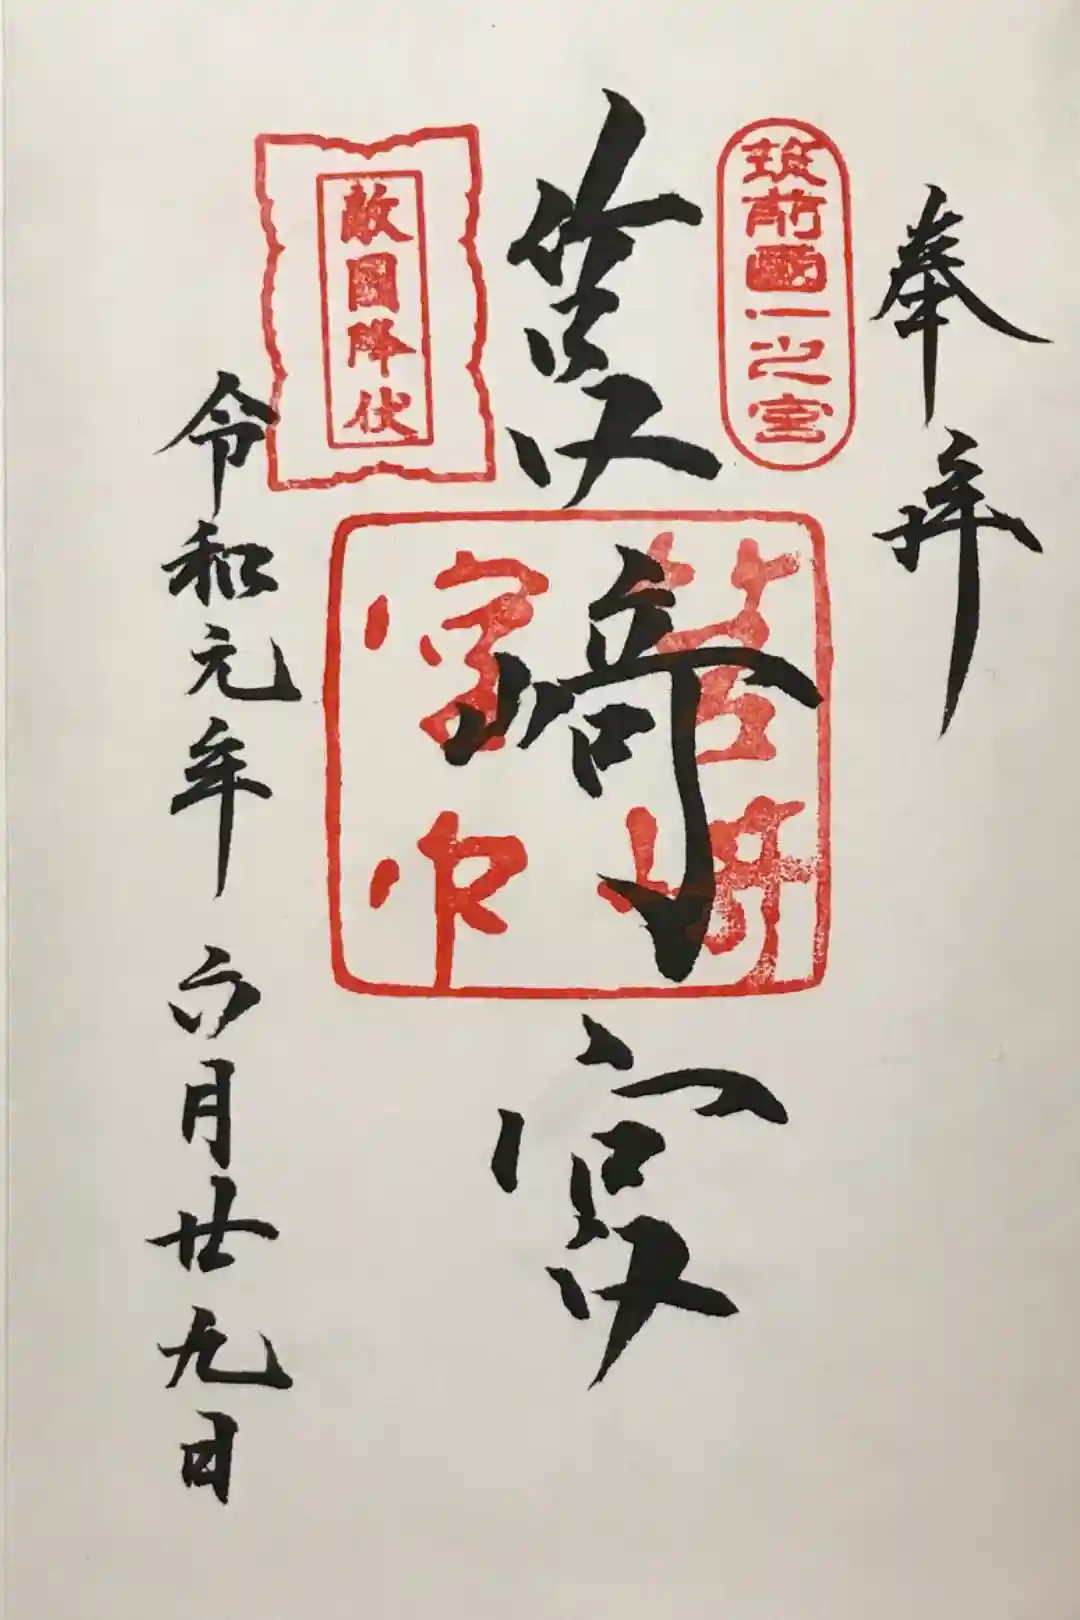 奉拝
筑前國一之宮
筥崎宮
筥崎宮印
敵國降伏
令和元年 六月廿九日